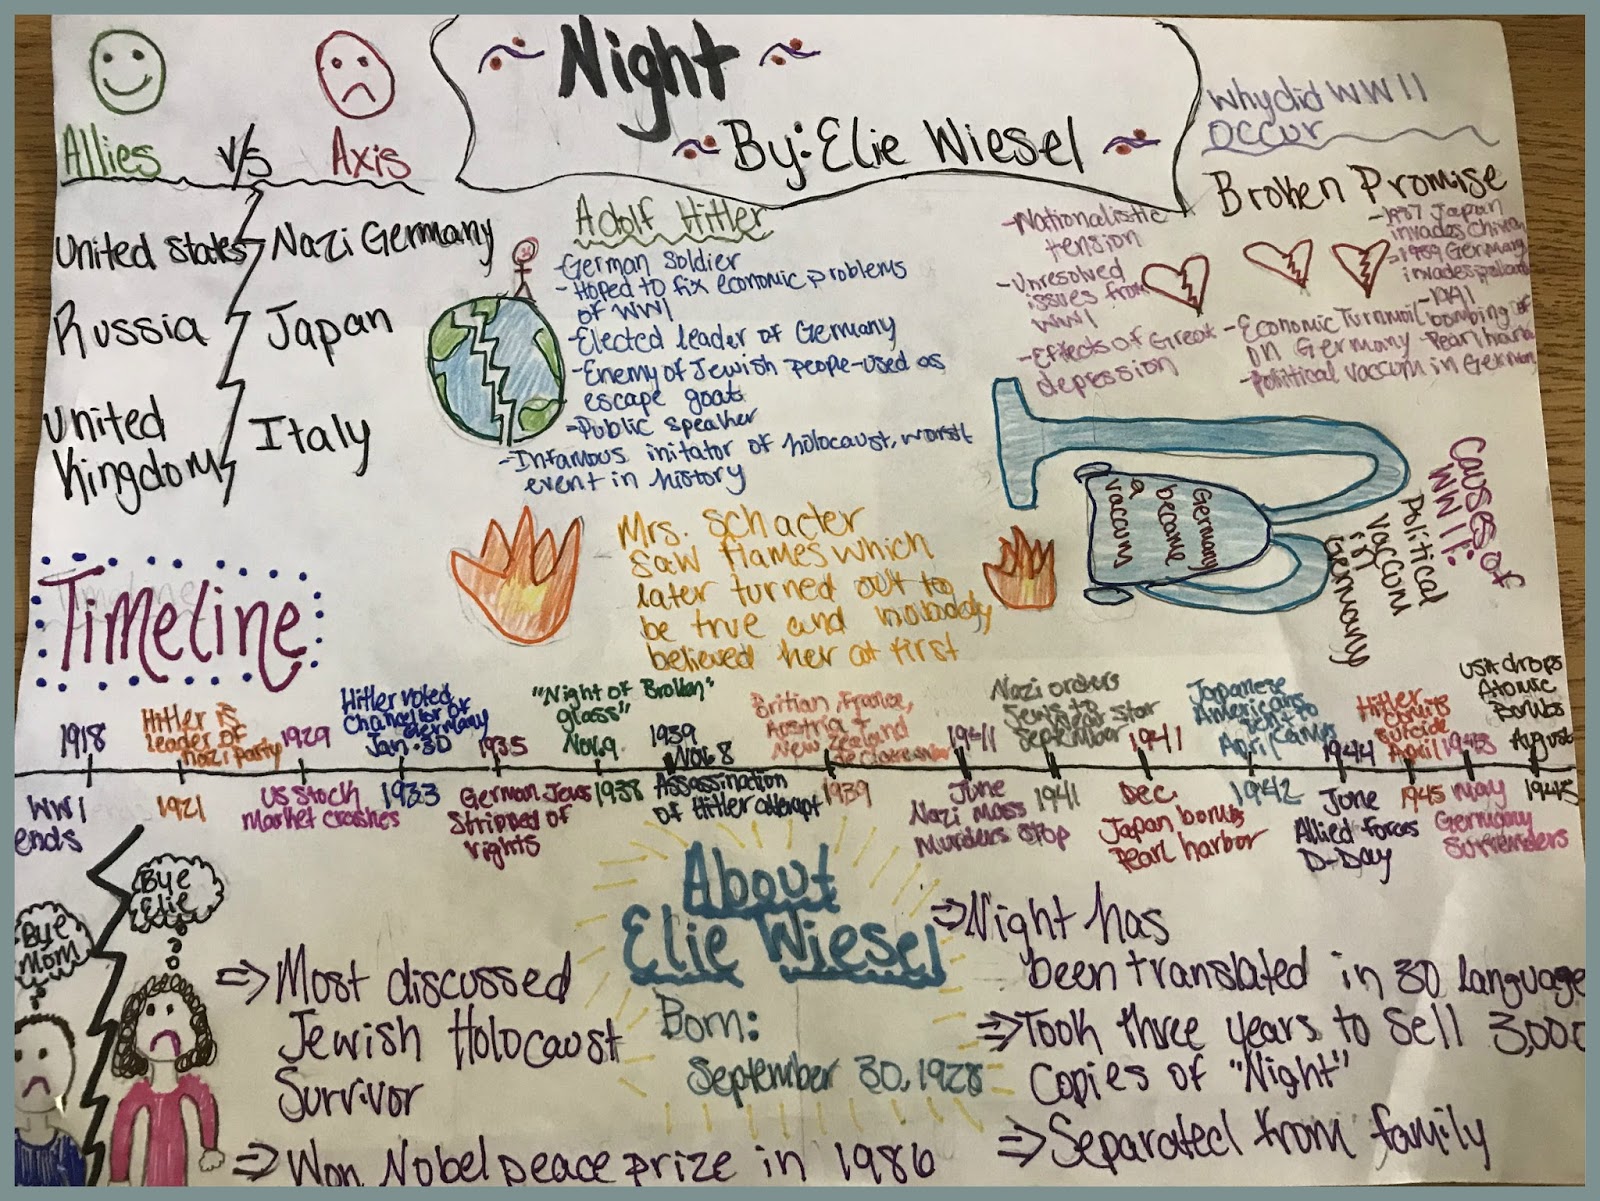 Allies v/s Axis
United States
Nazi Germany
Russia
Japan
United
Kingdom
Italy
Night
By: Elie Wiesel
Why did WWII
occur
Broken Promise
Adolf Hitler
-German soldier
-Hoped to fix economic problems
of WW1
-Elected leader of Germany
-Enemy of Jewish people-used as
escape goats
-Public speaker
-Infamous initator of holocaust, worst
event in history
-Nationalistic
tension
-Unresolved
issues from
WW1
-Effects of Great
depression
-1937 Japan
invades China
-1939 Germany
invades poland
-Economic Turnmoil
on Germany
-Political vaccum in Germany
-1941
bombing of
Pearl harbor
Germany
became
a
vaccum
Causes of
WWII:
Political
vaccum
in
Germany
Mrs. Schacter
saw flames which
later turned out to
be true and nobody
believed her at first
Timeline
1918
WW1
ends
Hitler is
leader of
Nazi party
1921
1929
US stock
market crashes
Hitler voted
Chancellor of
Germany
Jan. 30
1933
1935
German Jews
Stripped of
rights
"Night of Broken"
glass"
Nov.9
1938
1939
Nov. 8
Assassination
of Hitler attempt
Britian, France,
Austria, and
New Zealand
1939
1941
June
Nazi mass
Murders stop
Nazi orders
Jews to
wear star
September
1941
1941
Dec.
Japan bombs
Pearl harbor
Japanese
Americans
sent to
camps
April
1942
1944
June
Allied forces
D-Day
Hitler
suicide
April
1945
May
Germany
Surrenders
USA drops
Atomic
Bombs
August
1945
Bye
Mom
Bye
Elie
About
Elie Wiesel
Born:
September 30, 1928
⇒Most discussed
Jewish Holocaust
Survivor
⇒Won Nobel peace prize in 1986
⇒Night has
been translated in 30 language
⇒Took three years to sell 3,000
Copies of "Night"
⇒Separated from family